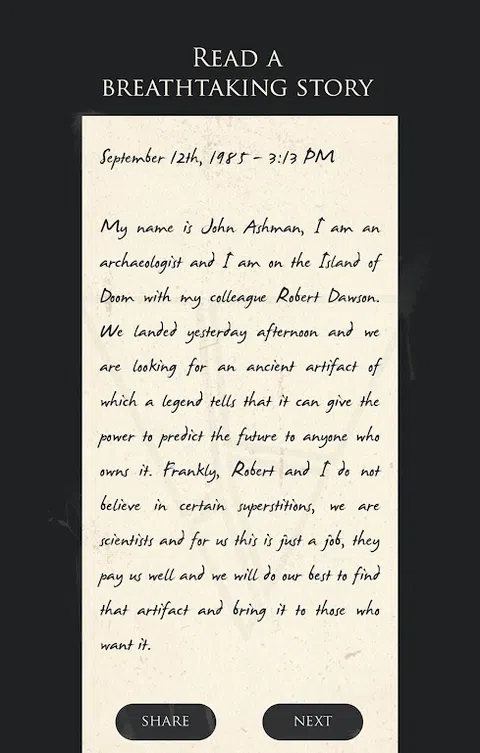 Read a
breathtaking story
September 12th, 1985 - 3:13 PM
My name is John Ashman, I am an
archaeologist and I am on the Island of
Doom with my colleague Robert Dawson.
We landed yesterday afternoon and we
are looking for an ancient artifact of
which a legend tells that it can give the
power to predict the future to anyone who
owns it. Frankly, Robert and I do not
believe in certain superstitions, we are
scientists and for us this is just a job, they
pay us well and we will do our best to find
that artifact and bring it to those who
want it.
SHARE
NEXT